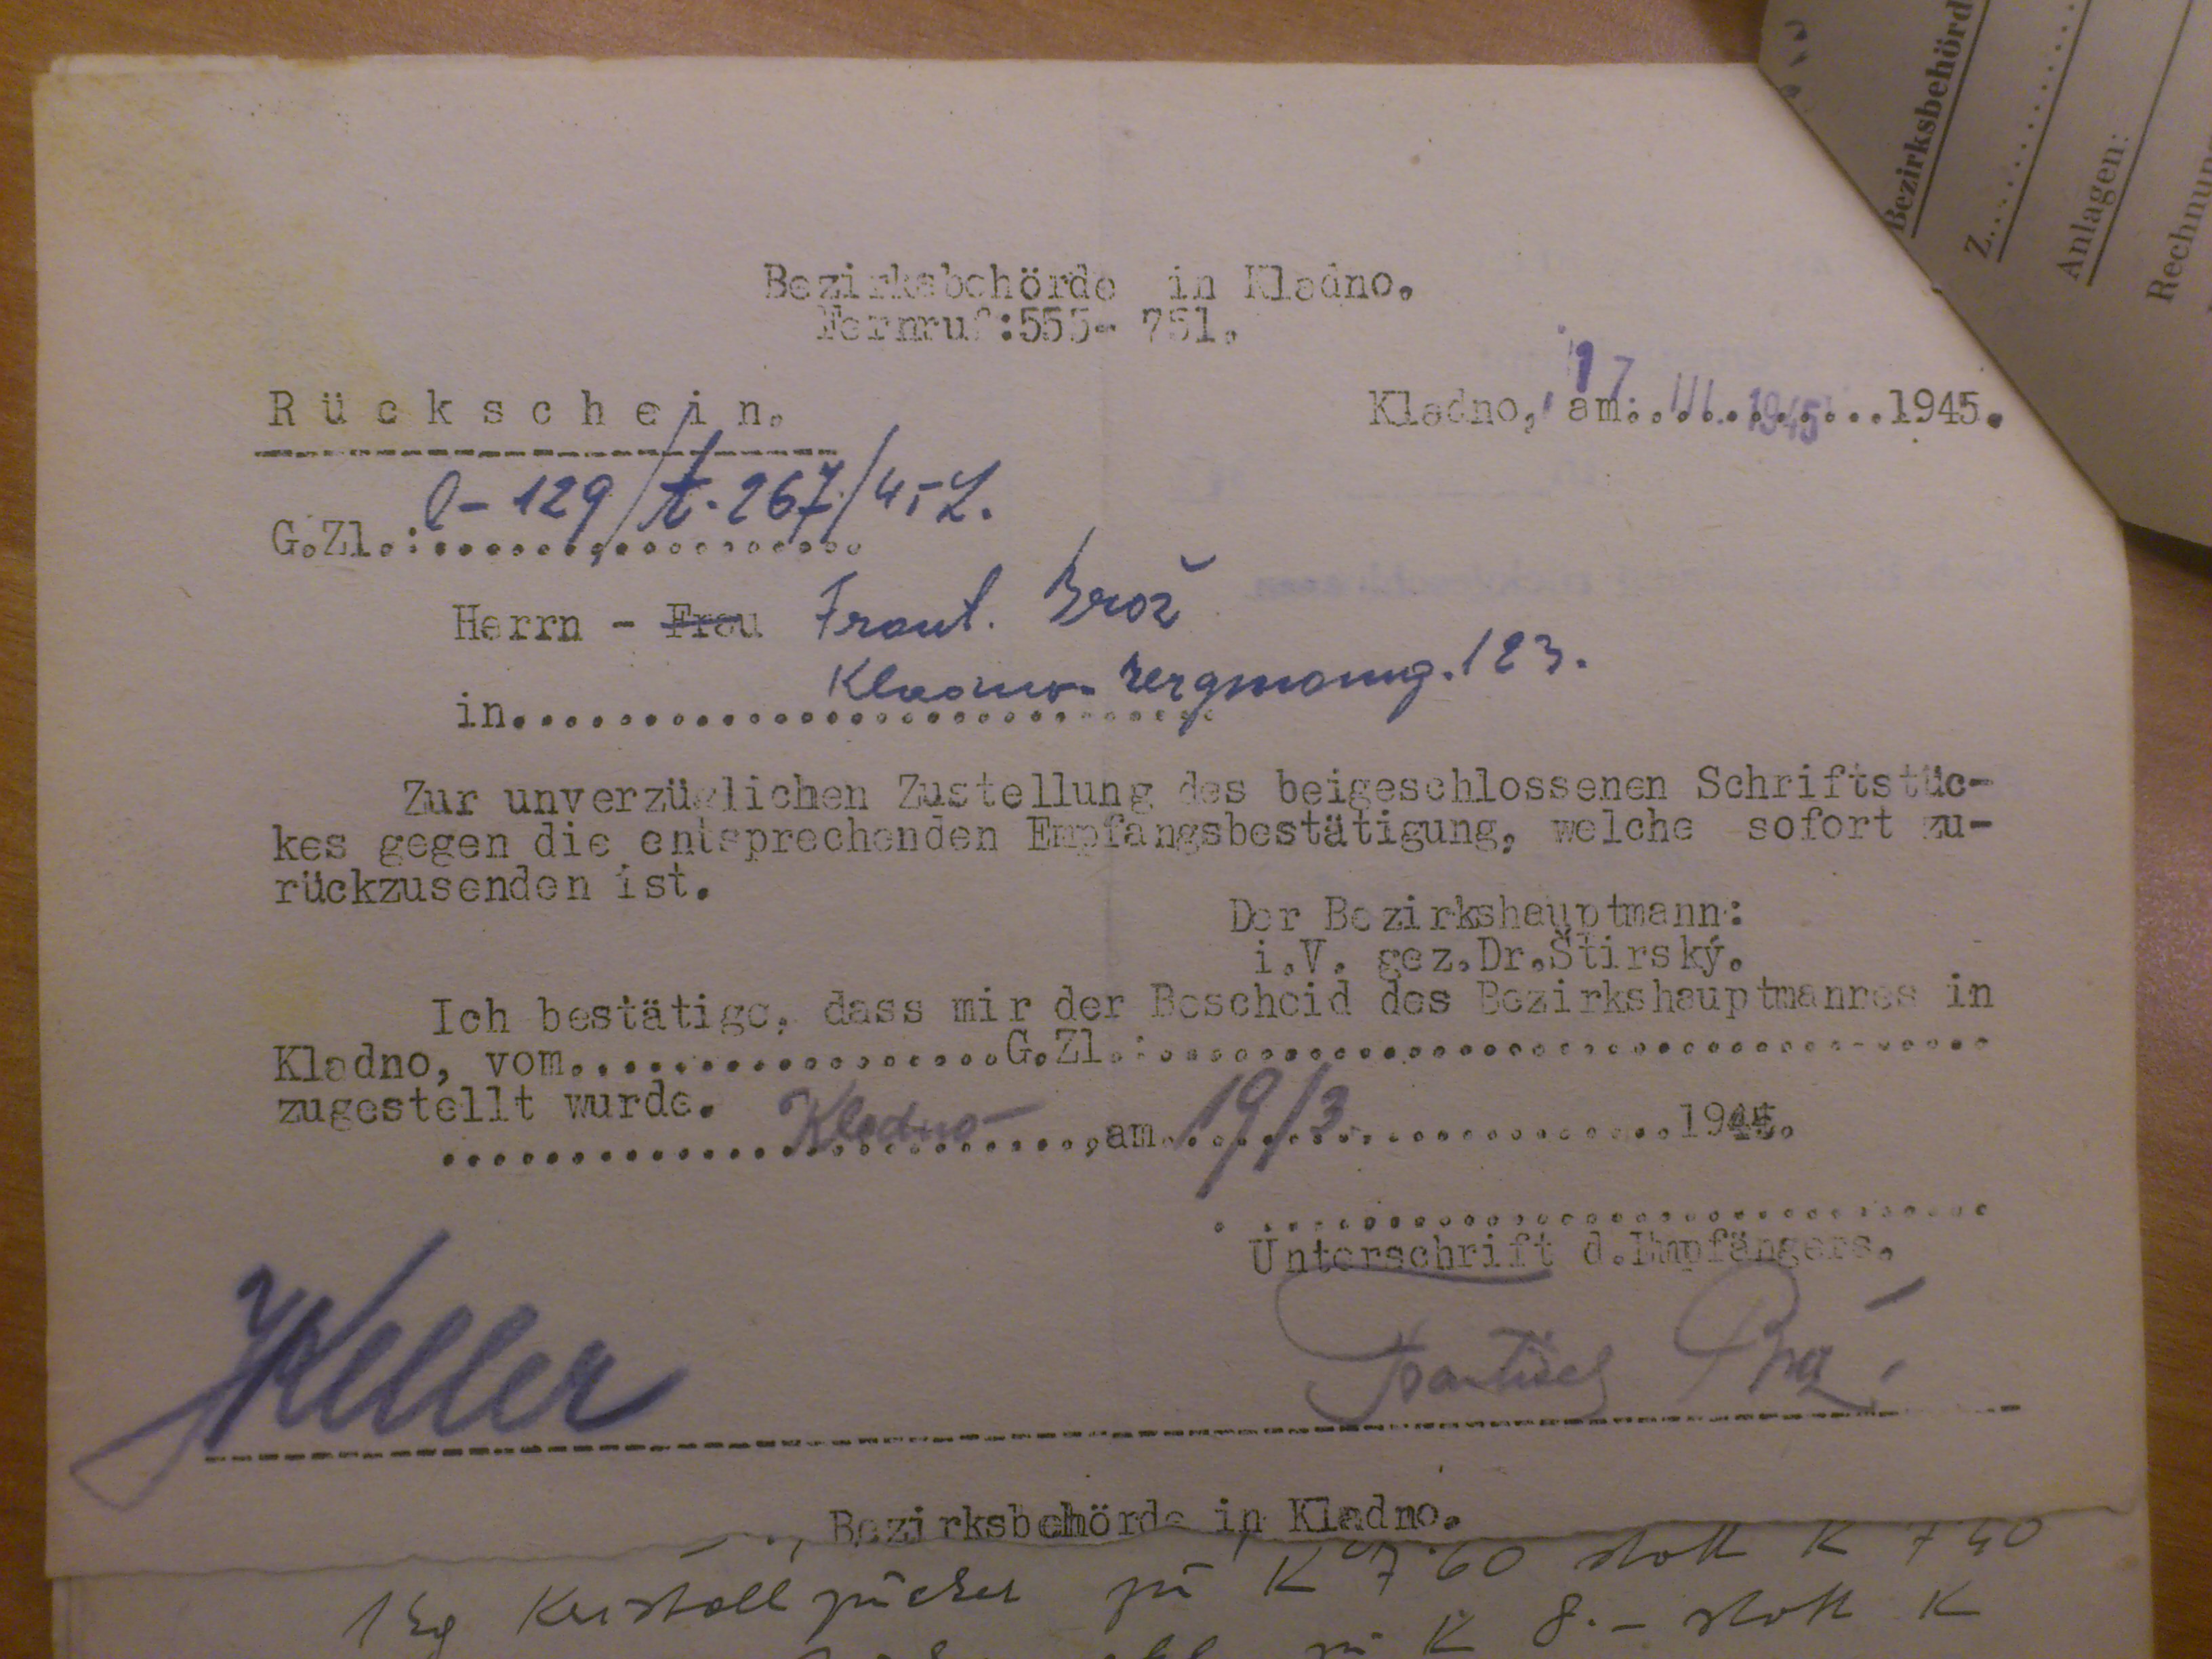 Bezirksbehörd
Z..............
Anlagen:
Rechnung
Bezirksbehörde in Kladno.
Fernruf:555- 751.
Rückschein.
Kladno, am 17. III. 1945 1945.
G.Zl.: 129/t.267/45-L.
Herrn - Frau Frant. Brož
in Kladno 123.
Zur unverzüglichen Zustellung des beigeschlossenen Schriftstüc-
kes gegen die entsprechenden Empfangsbestätigung, welche sofort zu-
rückzusenden ist.
Der Bezirkshauptmann:
i.V. gez.Dr.Štirský.
Ich bestätige, dass mir der Bescheid des Bezirkshauptmannes in
Kladno, vom..................G.Zl.:................................
zugestellt wurde.
Kladno ,am 19/3 1945.
Unterschrift d.Empfängers.
Keller
František Brož
Bezirksbehörde in Kladno.
1 kg Kristallzucker zu K 7·60 statt K 7·40
zu K 8.- statt K